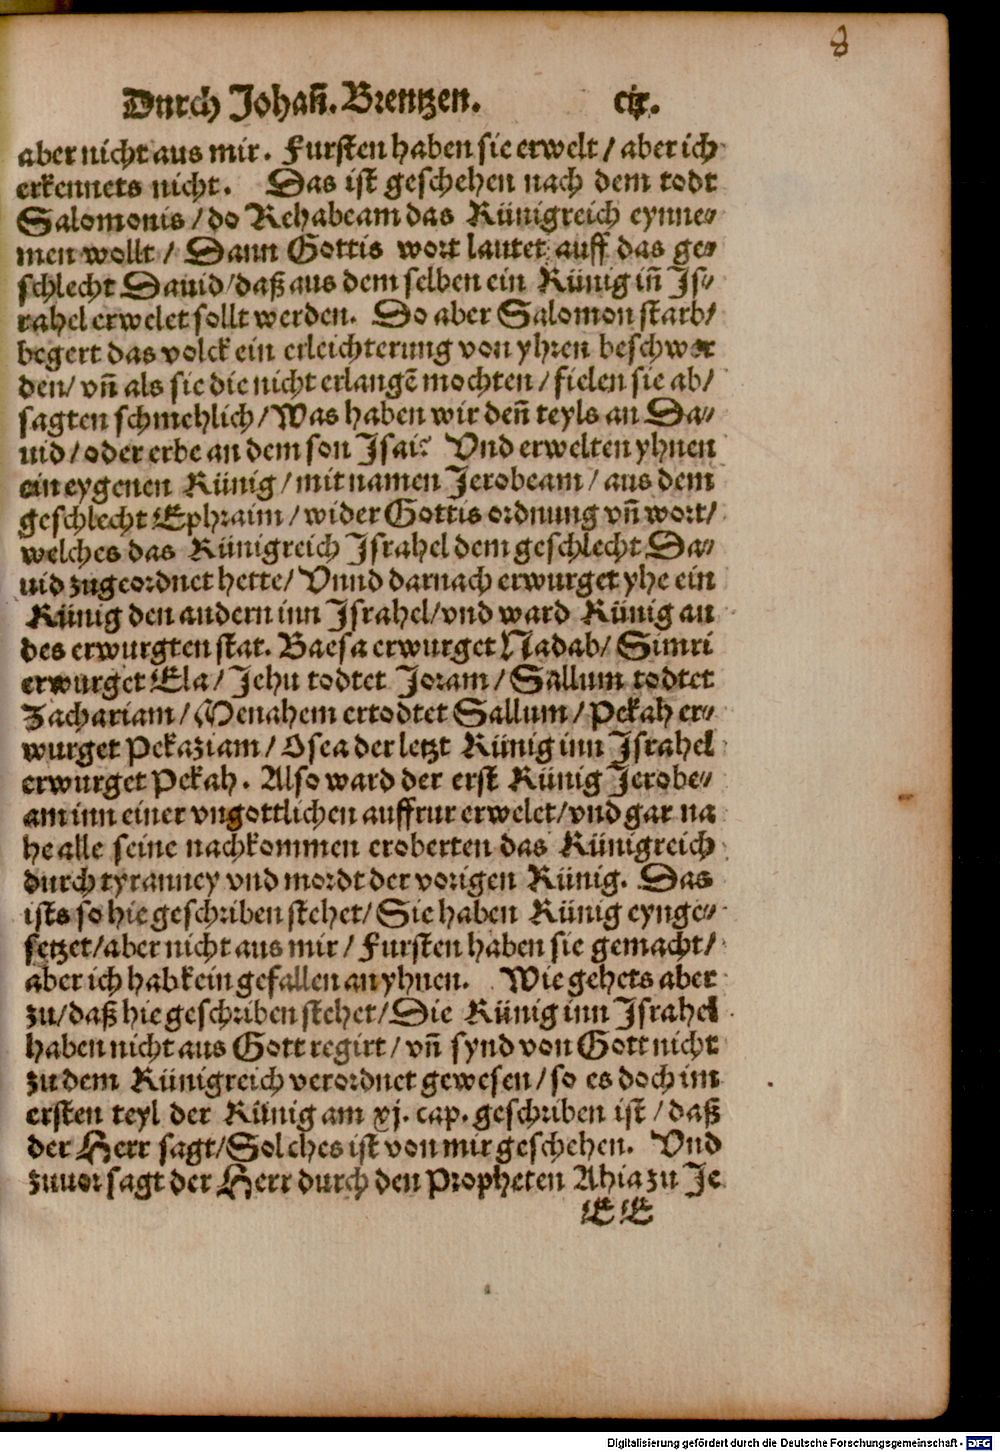 8
Durch Johañ. Brentzen. cix.
aber nicht aus mir. Fursten haben sie erwelt / aber ich
erkennets nicht. Das ist geschehen nach dem todt
Salomonis / do Rehabeam das Künigreich eynne⸗
men wollt / Dann Gottis wort lautet auff das ge⸗
schlecht Dauid / daß aus dem selben ein Künig iñ Is⸗
rahel erwelet sollt werden. Do aber Salomon starb /
begert das volck ein erleichterung von yhren beschwer
den / vñ als sie die nicht erlangẽ mochten / fielen sie ab /
sagten schmehlich / Was haben wir deñ teyls an Da⸗
uid / oder erbe an dem son Isai? Vnd erwelten yhnen
ein eygenen Künig / mit namen Jerobeam / aus dem
geschlecht Ephraim / wider Gottis ordnung vñ wort /
welches das Künigreich Israhel dem geschlecht Da⸗
uid zugeordnet hette / Vnnd darnach erwurget yhe ein
Künig den andern inn Israhel / vnd ward Künig an
des erwurgten stat. Baesa erwurget Nadab / Simri
erwurget Ela / Jehu todtet Joram / Sallum todtet
Zachariam / Menahem ertodtet Sallum / Pekah er⸗
wurget Pekaziam / Osea der letzt Künig inn Israhel
erwurget Pekah. Also ward der erst Künig Jerobe⸗
am inn einer vngottlichen auffrur erwelet / vnd gar na
he alle seine nachkommen eroberten das Künigreich
durch tyranney vnd mordt der vorigen Künig. Das
ists so hie geschriben stehet / Sie haben Künig eynge⸗
setzet / aber nicht aus mir / Fursten haben sie gemacht /
aber ich hab kein gefallen an yhnen. Wie gehets aber
zu / daß hie geschriben stehet / Die Künig inn Israhel
haben nicht aus Gott regirt / vñ synd von Gott nicht
zu dem Künigreich verordnet gewesen / so es doch im
ersten teyl der Künig am xj. cap. geschriben ist / daß
der Herr sagt / Solches ist von mir geschehen. Vnd
zuuor sagt der Herr durch den Propheten Ahia zu Je
EE
Digitalisierung gefördert durch die Deutsche Forschungsgemeinschaft - DFG